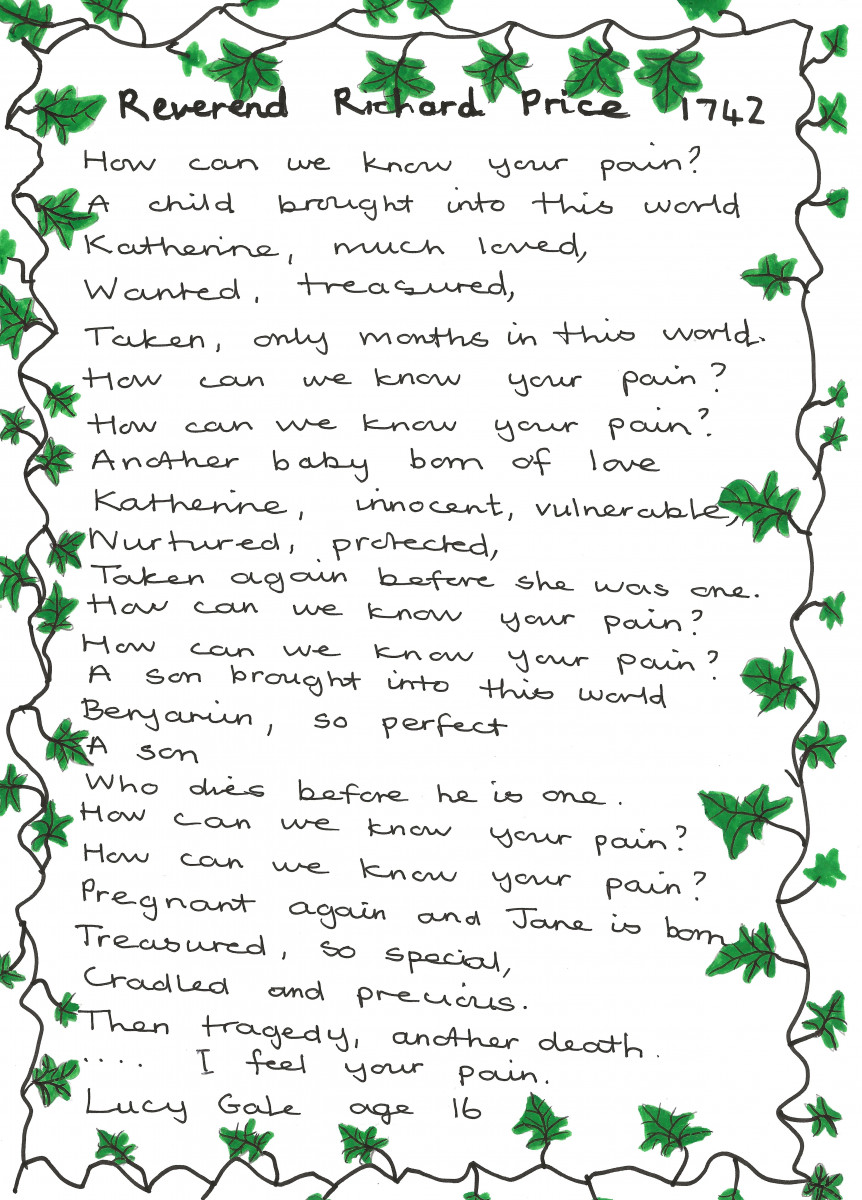 Reverend Richard Price 1742
How can we know your pain?
A child brought into this world
Katherine, much loved,
Wanted, treasured,
Taken, only months in this world.
How can we know your pain?
How can we know your pain?
Another baby born of love
Katherine, innocent, vulnerable,
Nurtured, protected,
Taken again before she was one.
How can we know your pain?
How can we know your pain?
A son brought into this world
Benjamin, so perfect
A son
Who dies before he is one.
How can we know your pain?
How can we know your pain?
Pregnant again and Jane is born
Treasured, so special,
Cradled and precious.
Then tragedy, another death.
.... I feel your pain.
Lucy Gale age 16